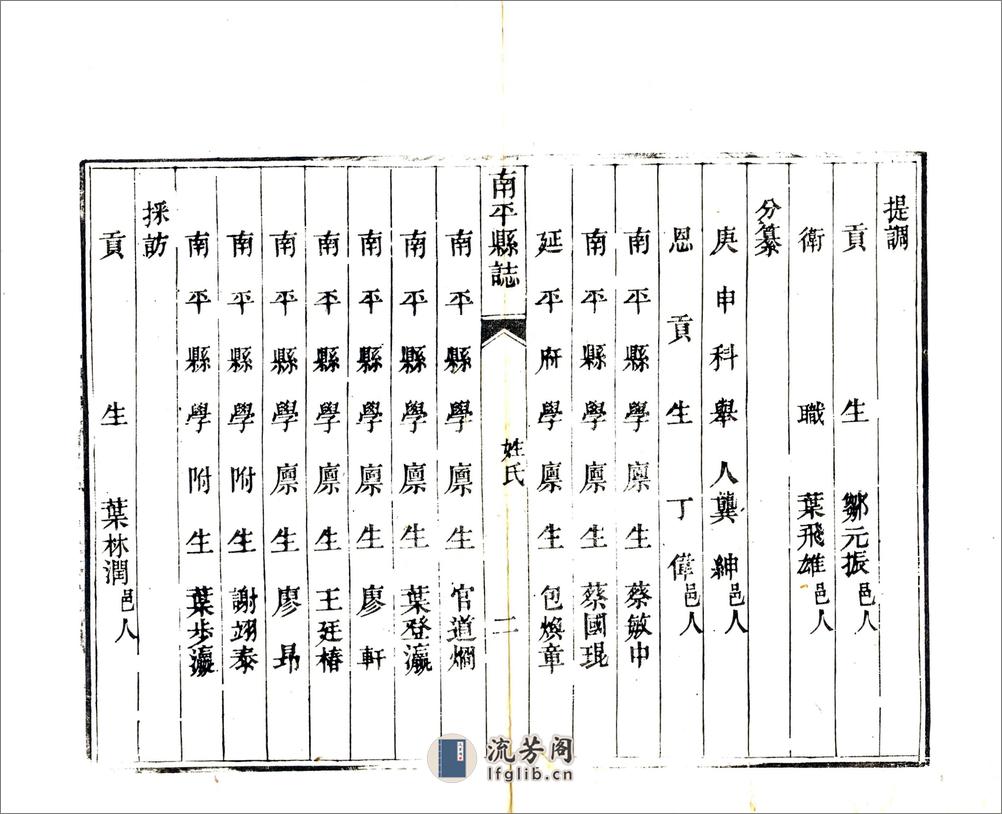 提調
貢生鄒元振邑人
衛職葉飛雄邑人
分纂
庚申科舉人龔紳邑人
恩貢生丁偉邑人
南平縣學廪生蔡敏中
南平縣學廪生蔡國琨
延平府學廪生包煥章
南平縣誌
姓氏
二
南平縣學廪生官道燗
南平縣學廪生葉登瀛
南平縣學廪生廖軒
南平縣學廪生王廷椿
南平縣學廪生廖昻
南平縣學附生謝翊泰
南平縣學附生葉步瀛
採訪
貢生葉林潤邑人
流芳阁
lfglib.cn